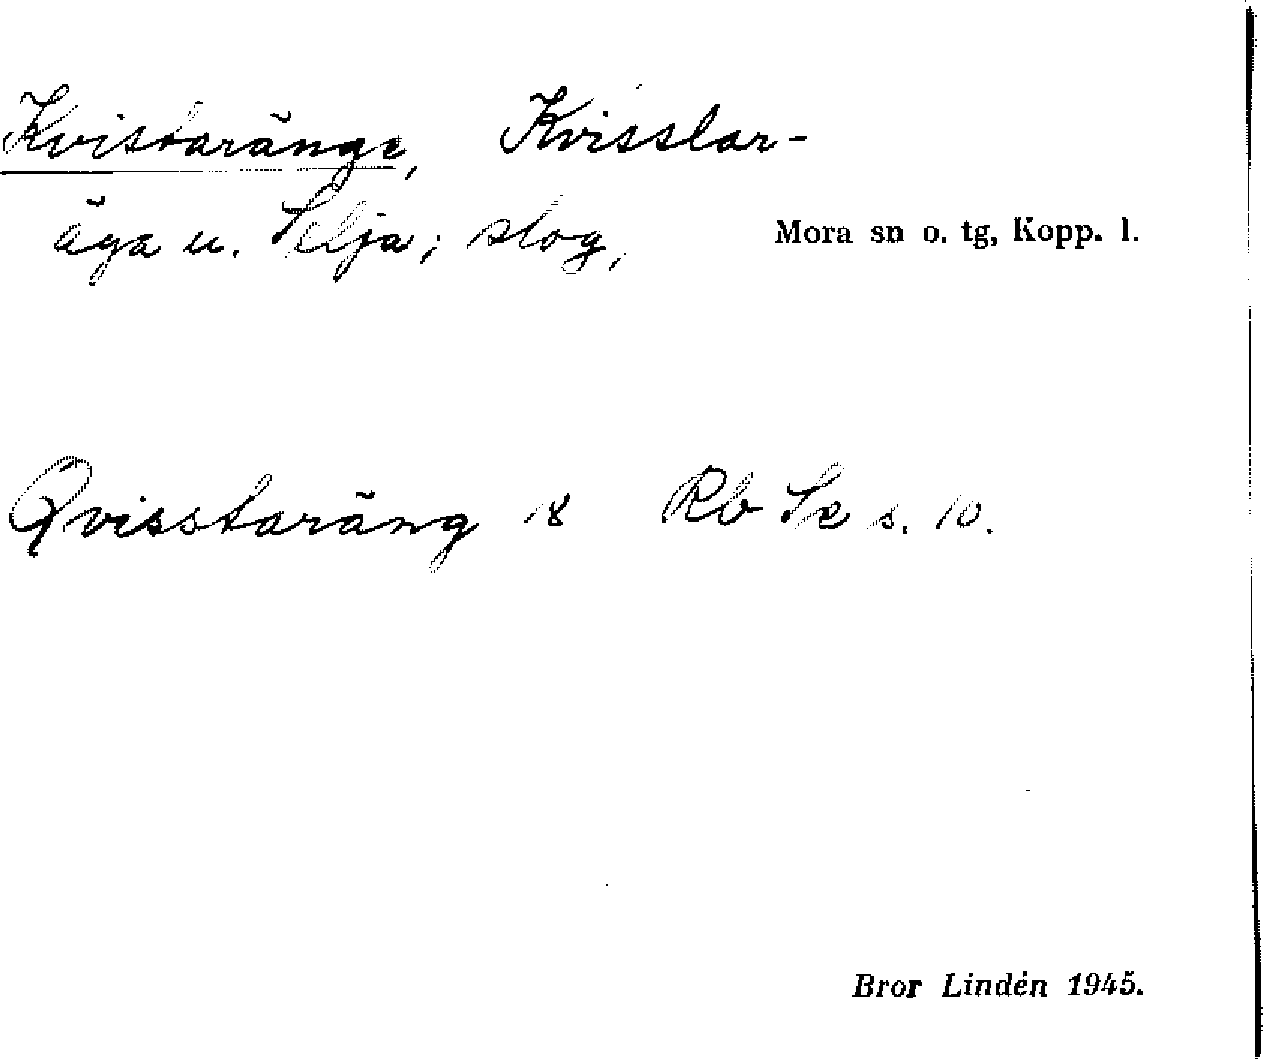 Kvistaränge, Kvisslar-
äga u. Selja; slog,
Mora sn o. tg, Kopp. l.
Qvisstaräng 18 Rb Se s. 10.
Bror Lindén 1945.